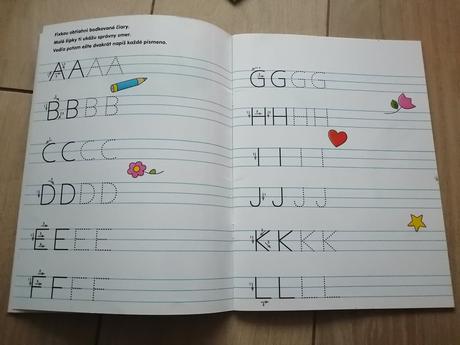 Fixkou obtiahni bodkované čiary.
Malé šípky ti ukážu správny smer.
Vedľa potom ešte dvakrát napíš každé písmeno.
A A A A
B B B B
C C C C
D D D D
E E E E
F F F F
G G G G
H H H H
I I I I
J J J J
K K K K
L L L L